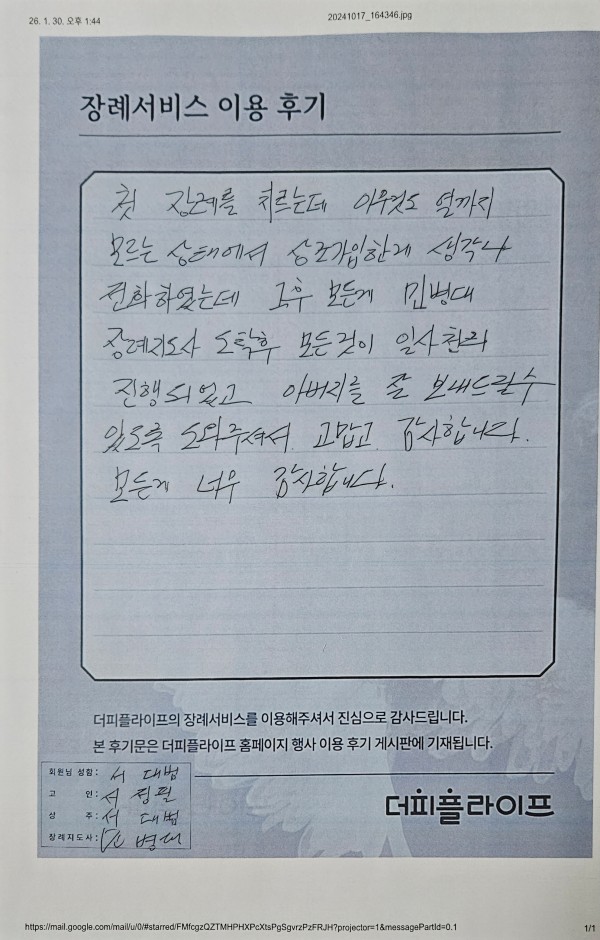 26. 1. 30. 오후 1:44
20241017_164346.jpg
장례서비스 이용 후기
첫 장례를 치르는데 아무것도 열까지
모르는 상태에서 상조가입한게 생각나
전화하였는데 그후 모든게 민병대
장례지도사 도착후 모든것이 일사천리
진행되었고 아버지를 잘 보내드릴수
있도록 도와주셔서 고맙고 감사합니다.
모든게 너무 감사합니다.
더피플라이프의 장례서비스를 이용해주셔서 진심으로 감사드립니다.
본 후기문은 더피플라이프 홈페이지 행사 이용 후기 게시판에 기재됩니다.
회원님 성함: 서 대범
고 인: 서 정필
상 주: 서 대범
장례지도사: 민 병대
더피플라이프
https://mail.google.com/mail/u/0/#starred/FMfcgzQZTMHPHXPcXtsPgSgvrzPzFRJH?projector=1&messagePartId=0.1
1/1